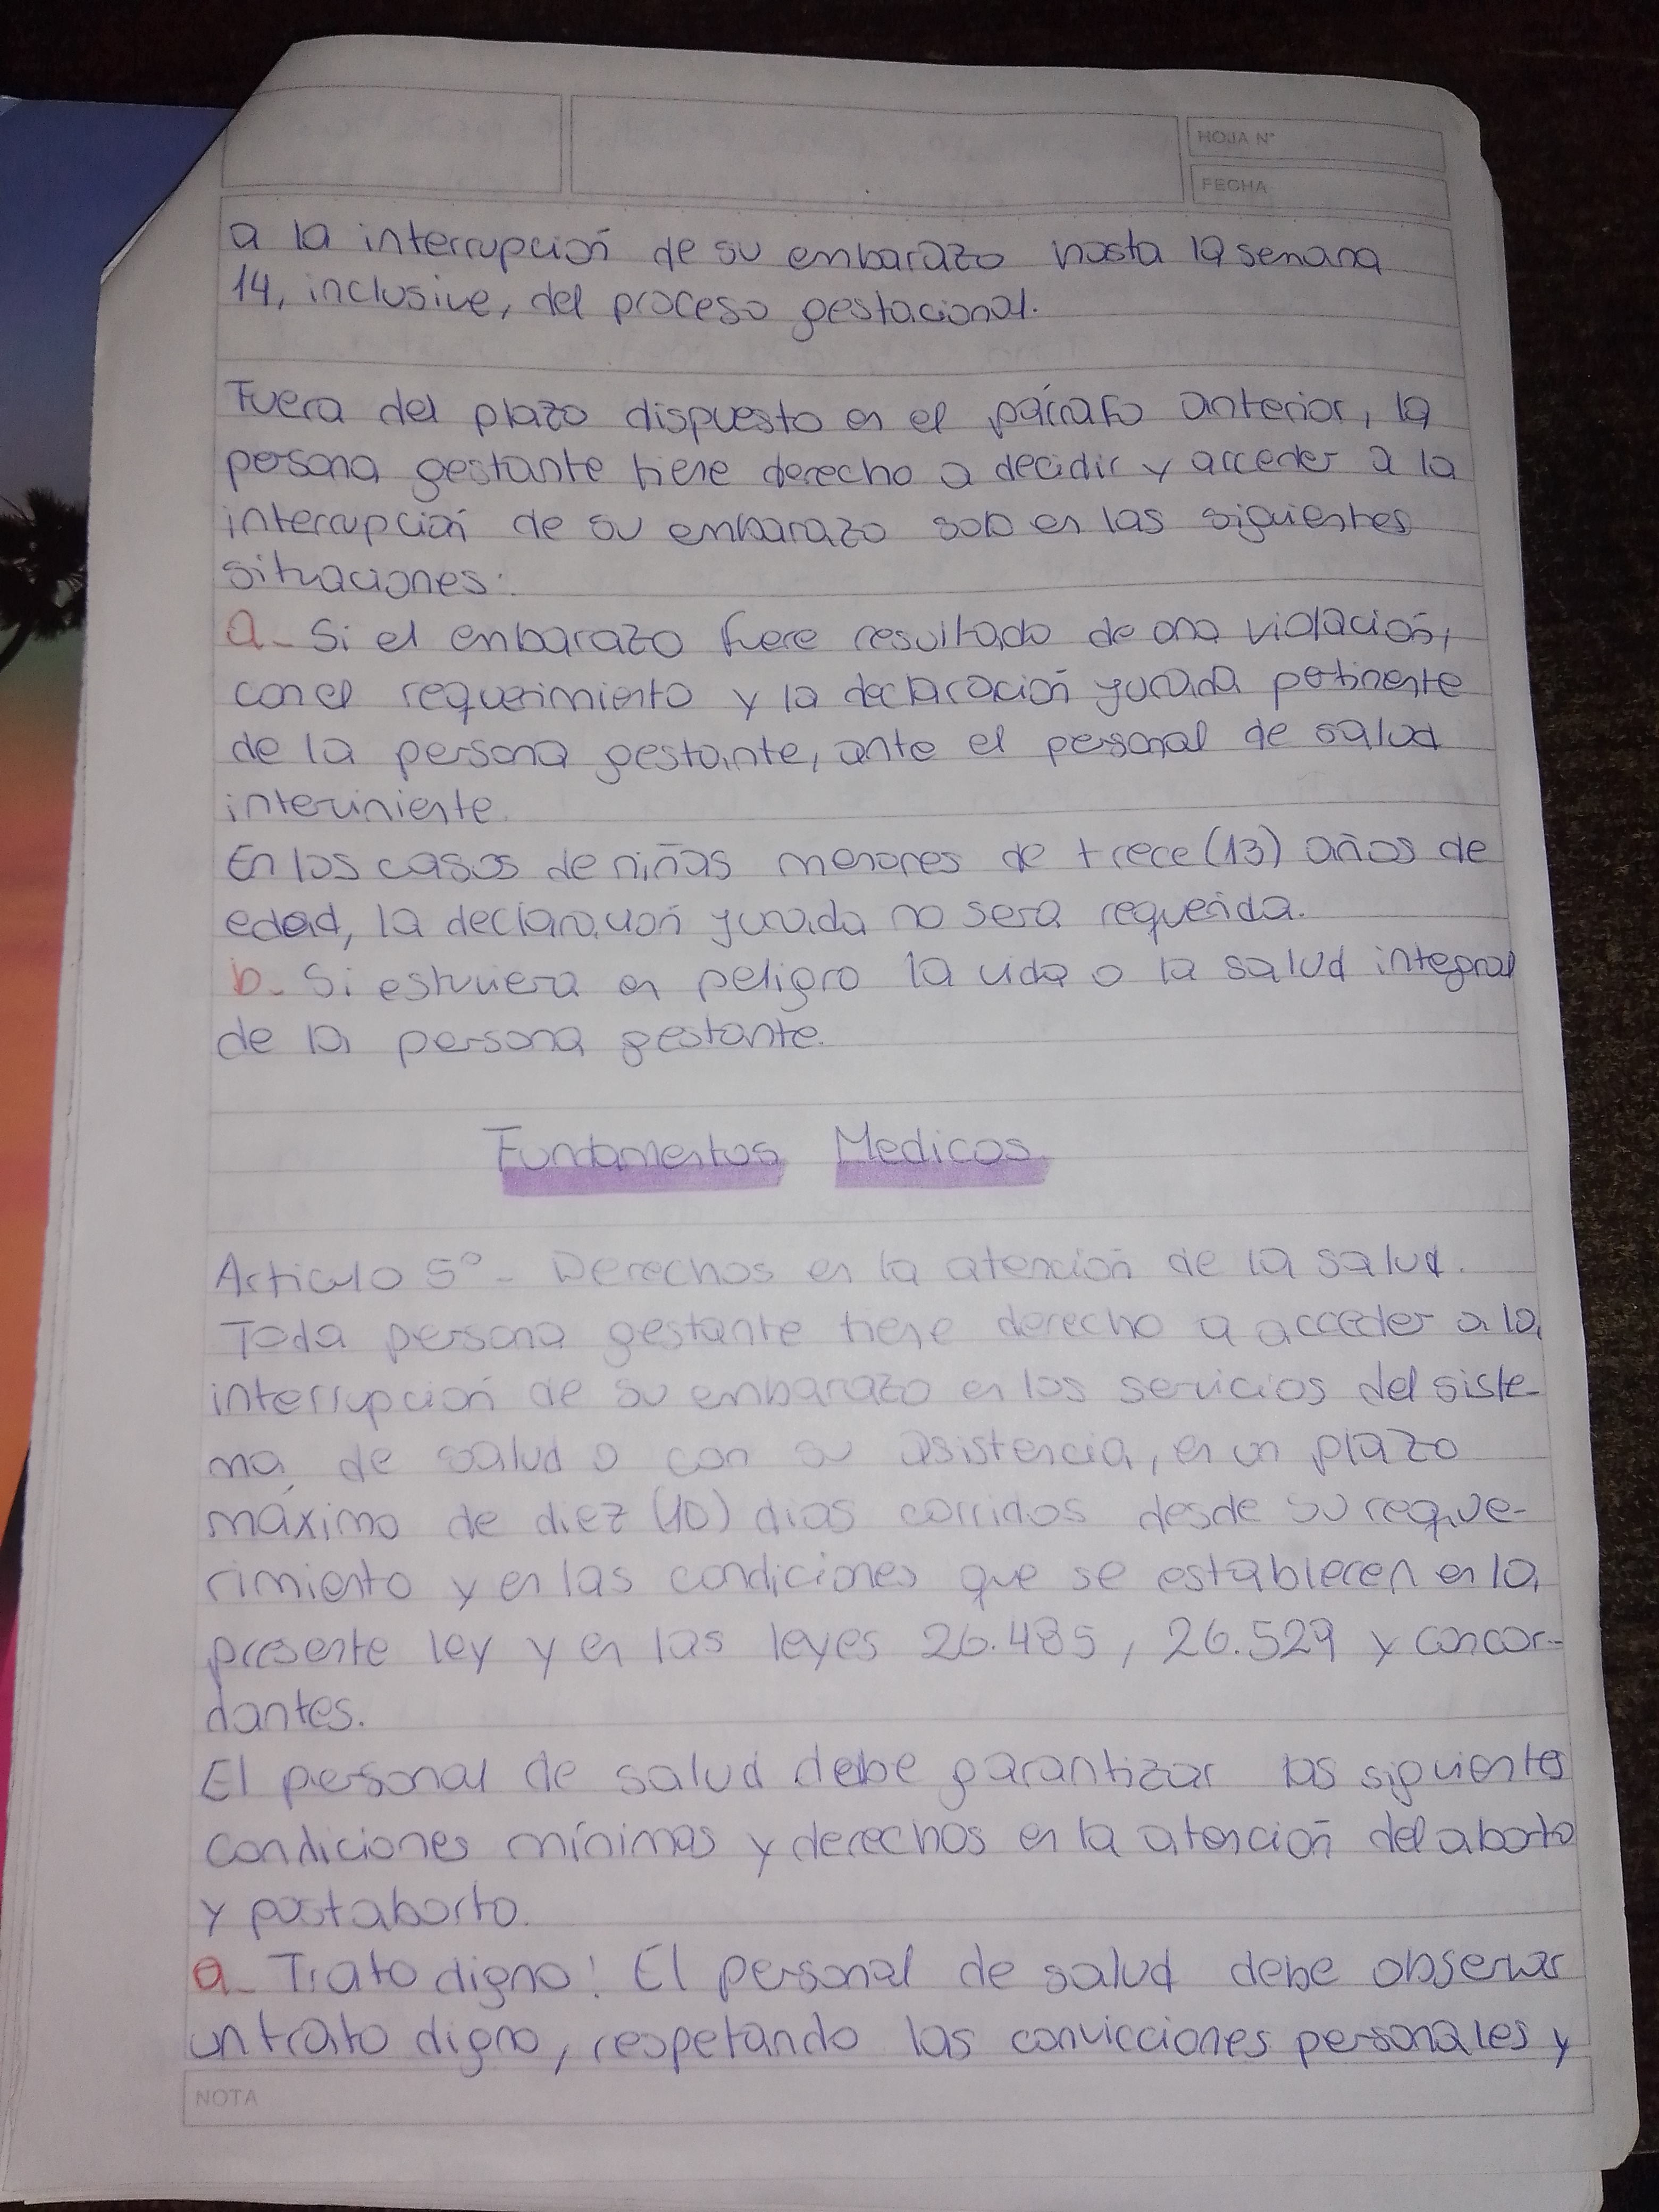 HOJA N°
FECHA
a la interrupción de su embarazo hasta la semana
14, inclusive, del proceso gestacional.
Fuera del plazo dispuesto en el párrafo anterior, la
persona gestante tiene derecho a decidir y acceder a la
interrupción de su embarazo solo en las siguientes
situaciones:
a- Si el embarazo fuere resultado de una violación,
con el requerimiento y la declaración jurada pertinente
de la persona gestante, ante el personal de salud
interviniente.
En los casos de niñas menores de trece (13) años de
edad, la declaración jurada no sera requerida.
b- Si estuviera en peligro la vida o la salud integral
de la persona gestante.
Fundamentos Medicos
Articulo 5° - Derechos en la atención de la salud.
Toda persona gestante tiene derecho a acceder a la
interrupción de su embarazo en los servicios del siste-
ma de salud o con su asistencia, en un plazo
máximo de diez (10) dias corridos desde su reque-
rimiento y en las condiciones que se establecen en la
presente ley y en las leyes 26.485, 26.529 y concor-
dantes.
El personal de salud debe garantizar las siguientes
condiciones mínimas y derechos en la atención del aborto
y postaborto.
a- Trato digno: El personal de salud debe observar
un trato digno, respetando las convicciones personales y
NOTA